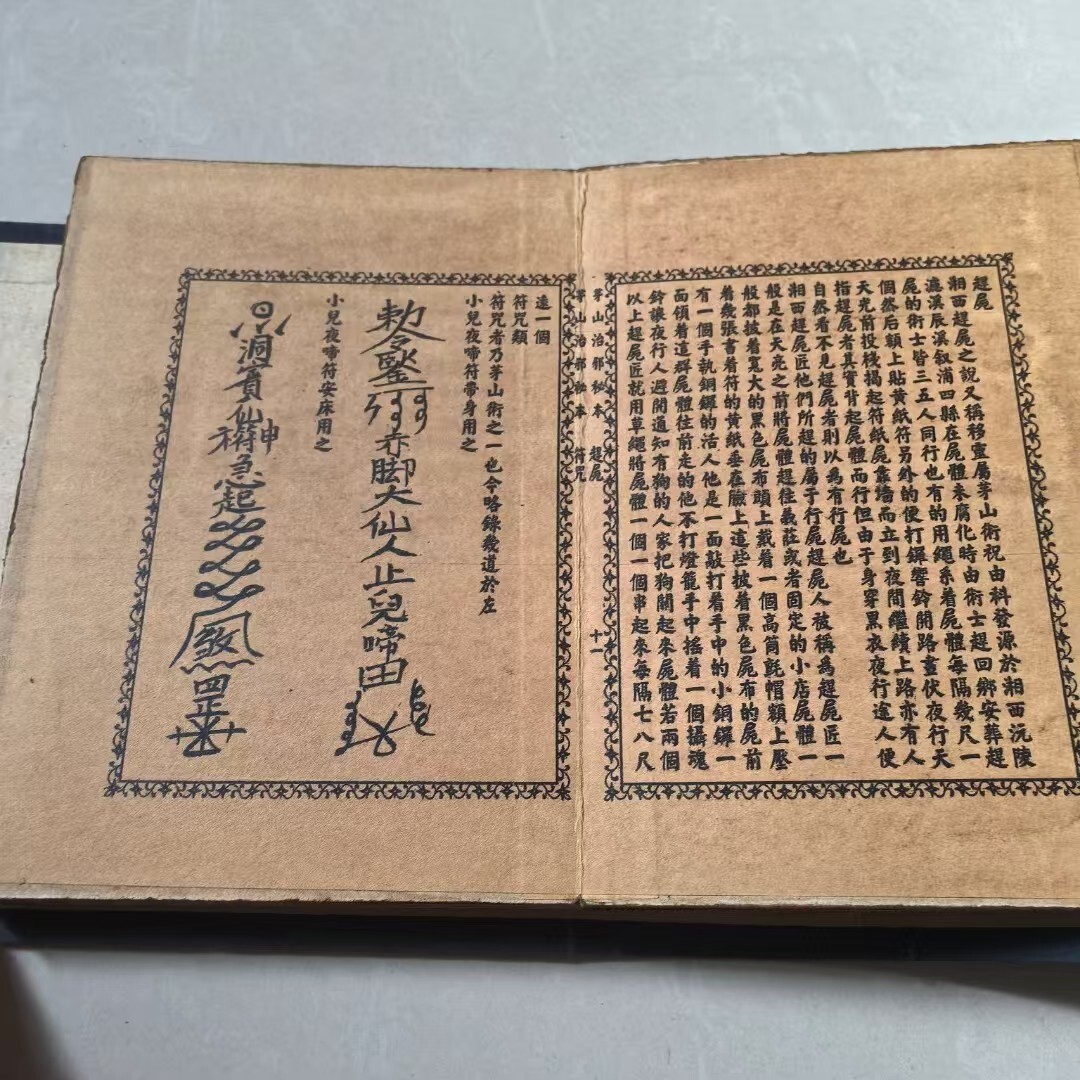 趕屍
湘西趕屍之說又稱移靈屬茅山術祝由科發源於湘西沅陵
瀘溪辰溪叙浦四縣在屍體未腐化時由術士趕回鄉安葬趕
屍的術士皆三五人同行也有的用繩系着屍體每隔幾尺一
個然后額上貼黄紙符另外的便打鑼響鈴開路晝伏夜行天
天光前投棧揭起符紙屍靠墻而立到夜間繼續上路亦有人
指趕屍者其實背起屍體而行但由于身穿黑衣夜行途人便
自然看不見趕屍者則以為有行屍也
湘西趕屍匠他們所趕的屬于行屍趕屍人被稱為趕屍匠一
般是在天亮之前將屍體趕往義莊或者固定的小店屍體一
般都披着寬大的黑色屍布頭上戴着一個高筒氈帽額上壓
着幾張書着符的黄紙垂在臉上這些披着黑色屍布的屍前
有一個手執銅鑼的活人他是一面敲打着手中的小銅鑼一
面領着這群屍體往前走的他不打燈籠手中摇着一個攝魂
鈴讓夜行人避開通知有狗的人家把狗關起來屍體若兩個
以上趕屍匠就用草繩將屍體一個一個串起來每隔七八尺
茅山治邪秘本 趕屍 十一
茅山治邪秘本 符咒
遠一個
符咒類
符咒者乃茅山術之一也今略錄幾道於左
小兒夜啼符帶身用之
勅令 赤脚大仙人止兒啼由
小兒夜啼符安床用之
洞賓仙神符急起 煞罡